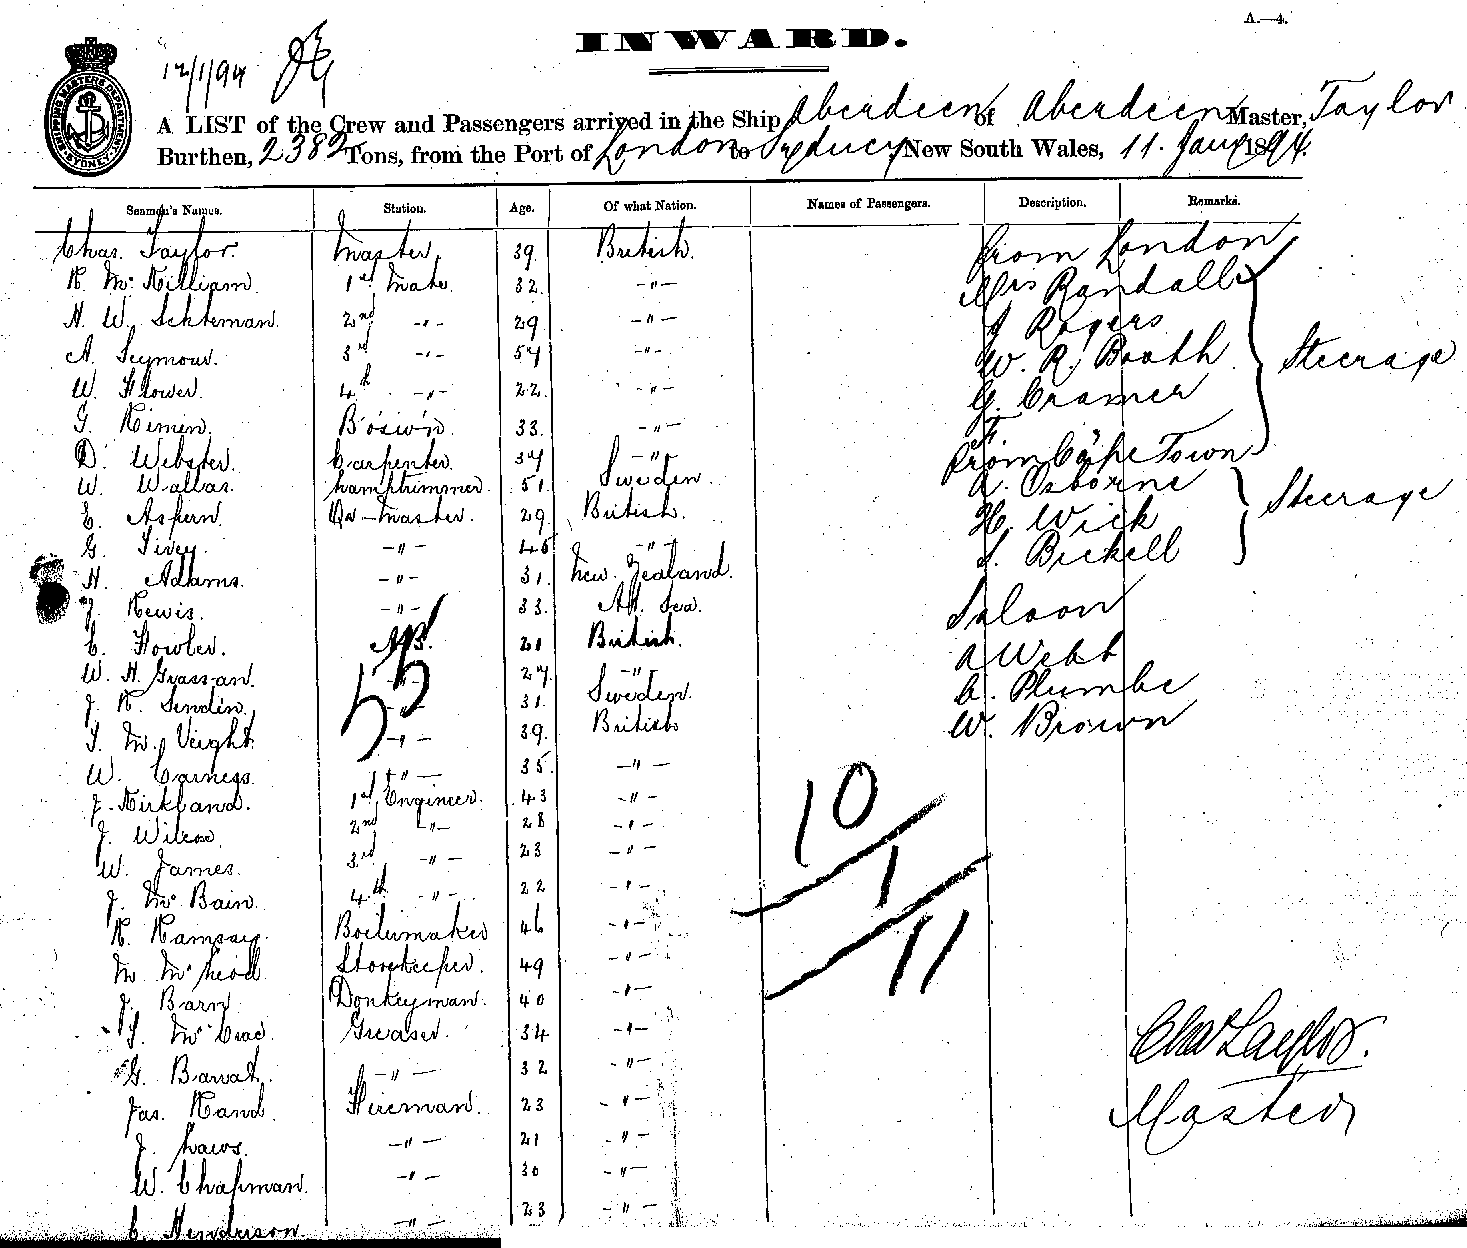 A.—4.
INWARD.
12/1/94
A LIST of the Crew and Passengers arrived in the Ship Aberdeen of Aberdeen Master, Taylor
Burthen, 2382 Tons, from the Port of London to Sydney, New South Wales, 11. Jany 1894.
Seamen's Names. Station. Age. Of what Nation. Names of Passengers. Description. Remarks.
Chas. Taylor. Master, 39. British. From London
R. Mc Killiam. 1st Mate. 32. —"— Mrs Randall
H. W. 2nd —"— 29. —"— J Rogers
A. Seymour. 3rd —"— 54 —"— W. R. Booth Steerage
W. Flower. 4th —"— 22. —"— G. Cramer
Bo'siw'n. 33. —"—
D. Webster. Carpenter. 34 —"— From Cape Town
W. Wallas. Lamptrimmer. 51. Sweden. A. Osborne
E. Aspern. Qr-Master. 29. British. H. Wick Steerage
G. Tivey. —"— 45 —"— S. Bickell
H. Adams. —"— 31. New Zealand.
J. Lewis. —"— 33. At Sea. Saloon
C. Fowler. A.B. 21 British. A Webb
W. H. Grassan. —"— 27. —"— C. Plumbe
J. R. —"— 31. Sweden. W. Brown
55
—"— 39. British
W. Carness. —"— 35. —"—
J. Kirkland. 1st Engineer. 43 —"— 10
J. Wilcox. 2nd —"— 28 —"—
W. James. 3rd —"— 23 —"— 1
J. Mc Bain. 4th —"— 22 —"—
R. Ramsay. Boilermaker 46 —"— 11
M Mc Leod Storekeeper. 49 —"—
J. Barn Donkeyman. 40 —"—
Mc Crae. Greaser. 34 —"— Chas Taylor.
G. Barrat. —"— 32 —"—
Jas. Rand. Fireman. 23 —"— Master
J. Laws. —"— 21 —"—
W. Chapman. —"— 30 —"—
C. Henderson. —"— 23 —"—